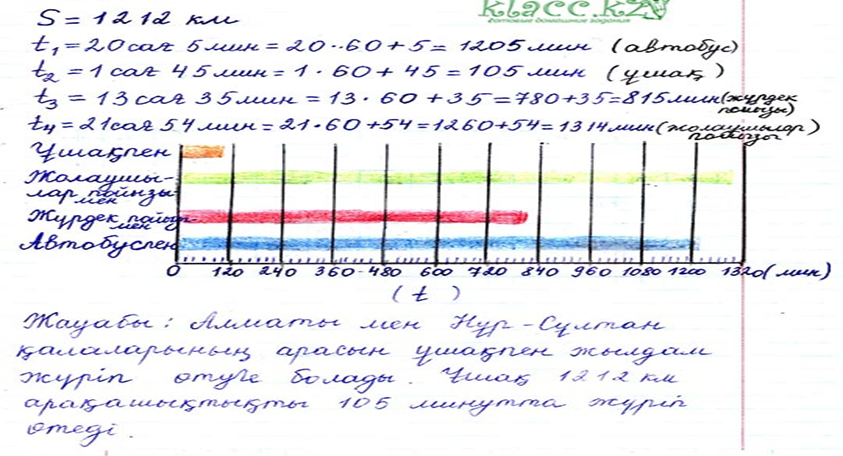 klacc.kz
готовые домашние задания
S = 1212 км
t₁ = 20 сағ 5 мин = 20·60+5 = 1205 мин (автобус)
t₂ = 1 сағ 45 мин = 1·60+45 = 105 мин (ұшақ)
t₃ = 13 сағ 35 мин = 13·60+35 = 780+35 = 815 мин (жүрдек пойызы)
t₄ = 21 сағ 54 мин = 21·60+54 = 1260+54 = 1314 мин (жолаушылар пойызы)
Ұшақпен
Жолаушы-
лар пойызы-
мен
Жүрдек пойыз-
мен
Автобуспен
0 120 240 360 480 600 720 840 960 1080 1200 1320 (мин)
(t)
Жауабы: Алматы мен Нұр-Сұлтан
қалаларының арасын ұшақпен жылдам
жүріп өтуге болады. Ұшақ 1212 км
арақашықтықты 105 минутта жүріп
өтеді.